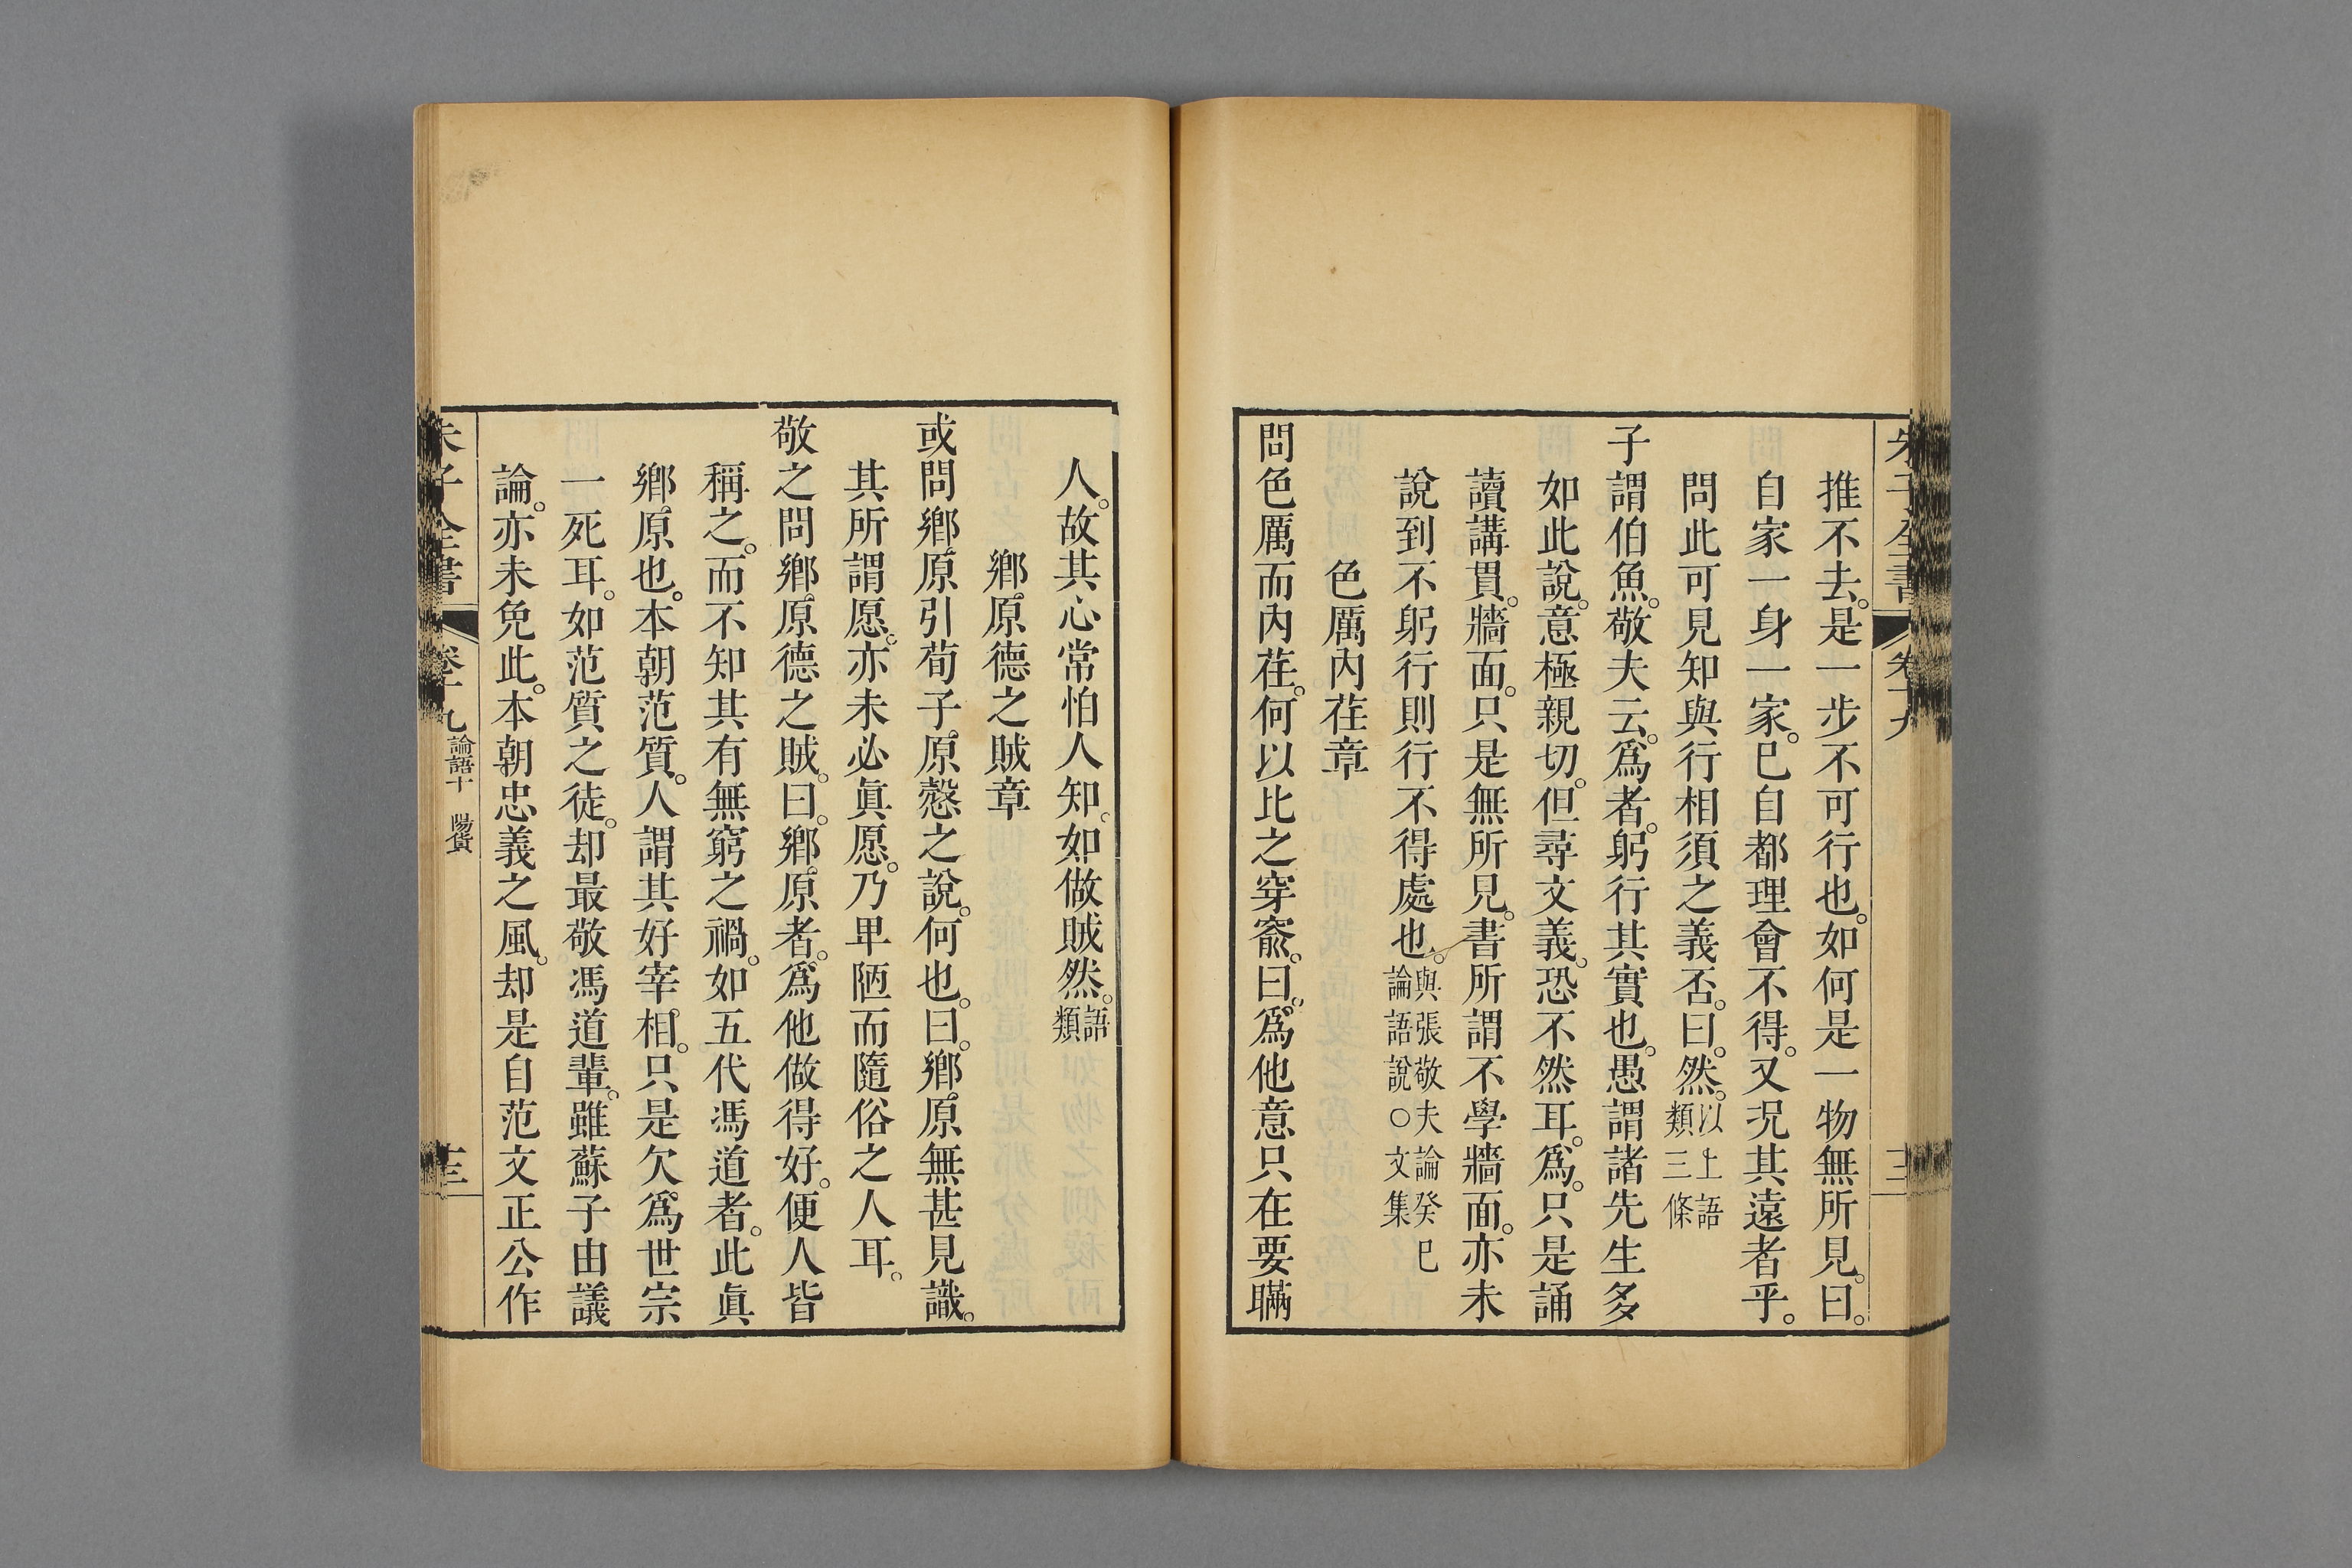 推不去。是一步不可行也。如何是一物無所見。曰。
自家一身一家。已自都理會不得。又况其遠者乎。
問此可見知與行相須之義否。曰。然。以上語類三條
子謂伯魚。敬夫云。爲者。躬行其實也。愚謂諸先生多
如此說。意極親切。但尋文義。恐不然耳。爲。只是誦
讀講貫。牆面。只是無所見。書所謂不學牆面。亦未
說到不躬行則行不得處也。與張敬夫論癸巳論語說○文集
色厲內荏章
問色厲而內荏。何以比之穿窬。曰。爲他意只在要瞞
人。故其心常怕人知。如做賊然。語類
鄉原德之賊章
或問鄉原引荀子原愨之說。何也。曰。鄉原無甚見識。
其所謂愿。亦未必眞愿。乃卑陋而隨俗之人耳。
敬之問鄉原德之賊。曰。鄉原者。爲他做得好。便人皆
稱之。而不知其有無窮之禍。如五代馮道者。此眞
鄉原也。本朝范質。人謂其好宰相。只是欠爲世宗
一死耳。如范質之徒。却最敬馮道輩。雖蘇子由議
論。亦未免此。本朝忠義之風。却是自范文正公作
朱子全書 卷十九 論語十 陽貨 十三